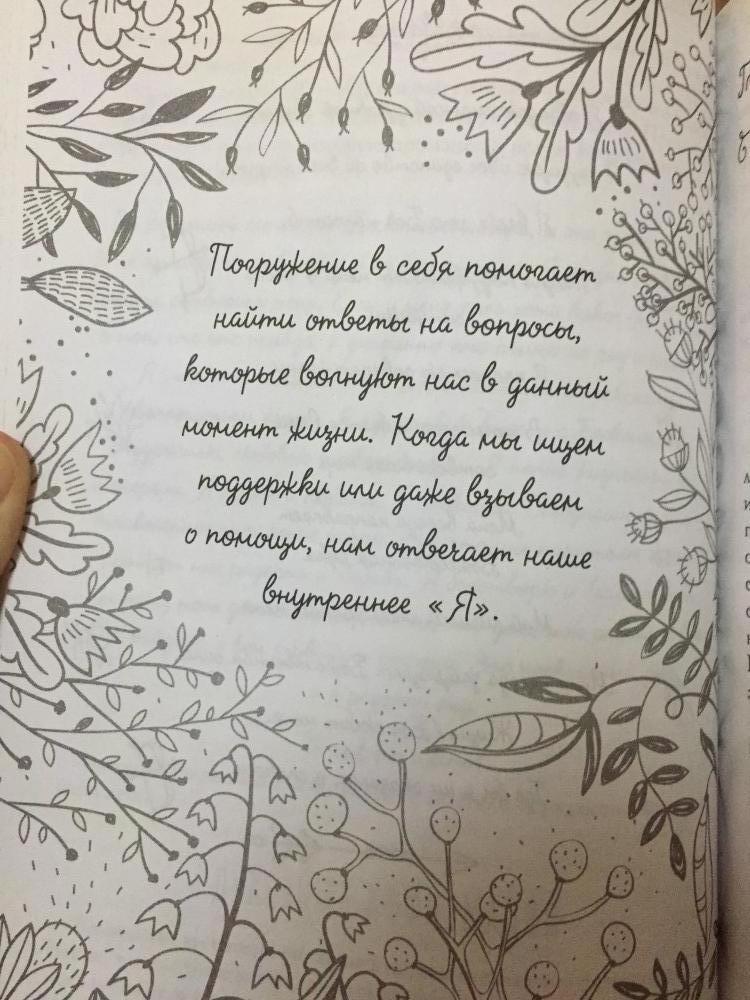 Погружение в себя помогает
найти ответы на вопросы,
которые волнуют нас в данный
момент жизни. Когда мы ищем
поддержки или даже взываем
о помощи, нам отвечает наше
внутреннее «Я».